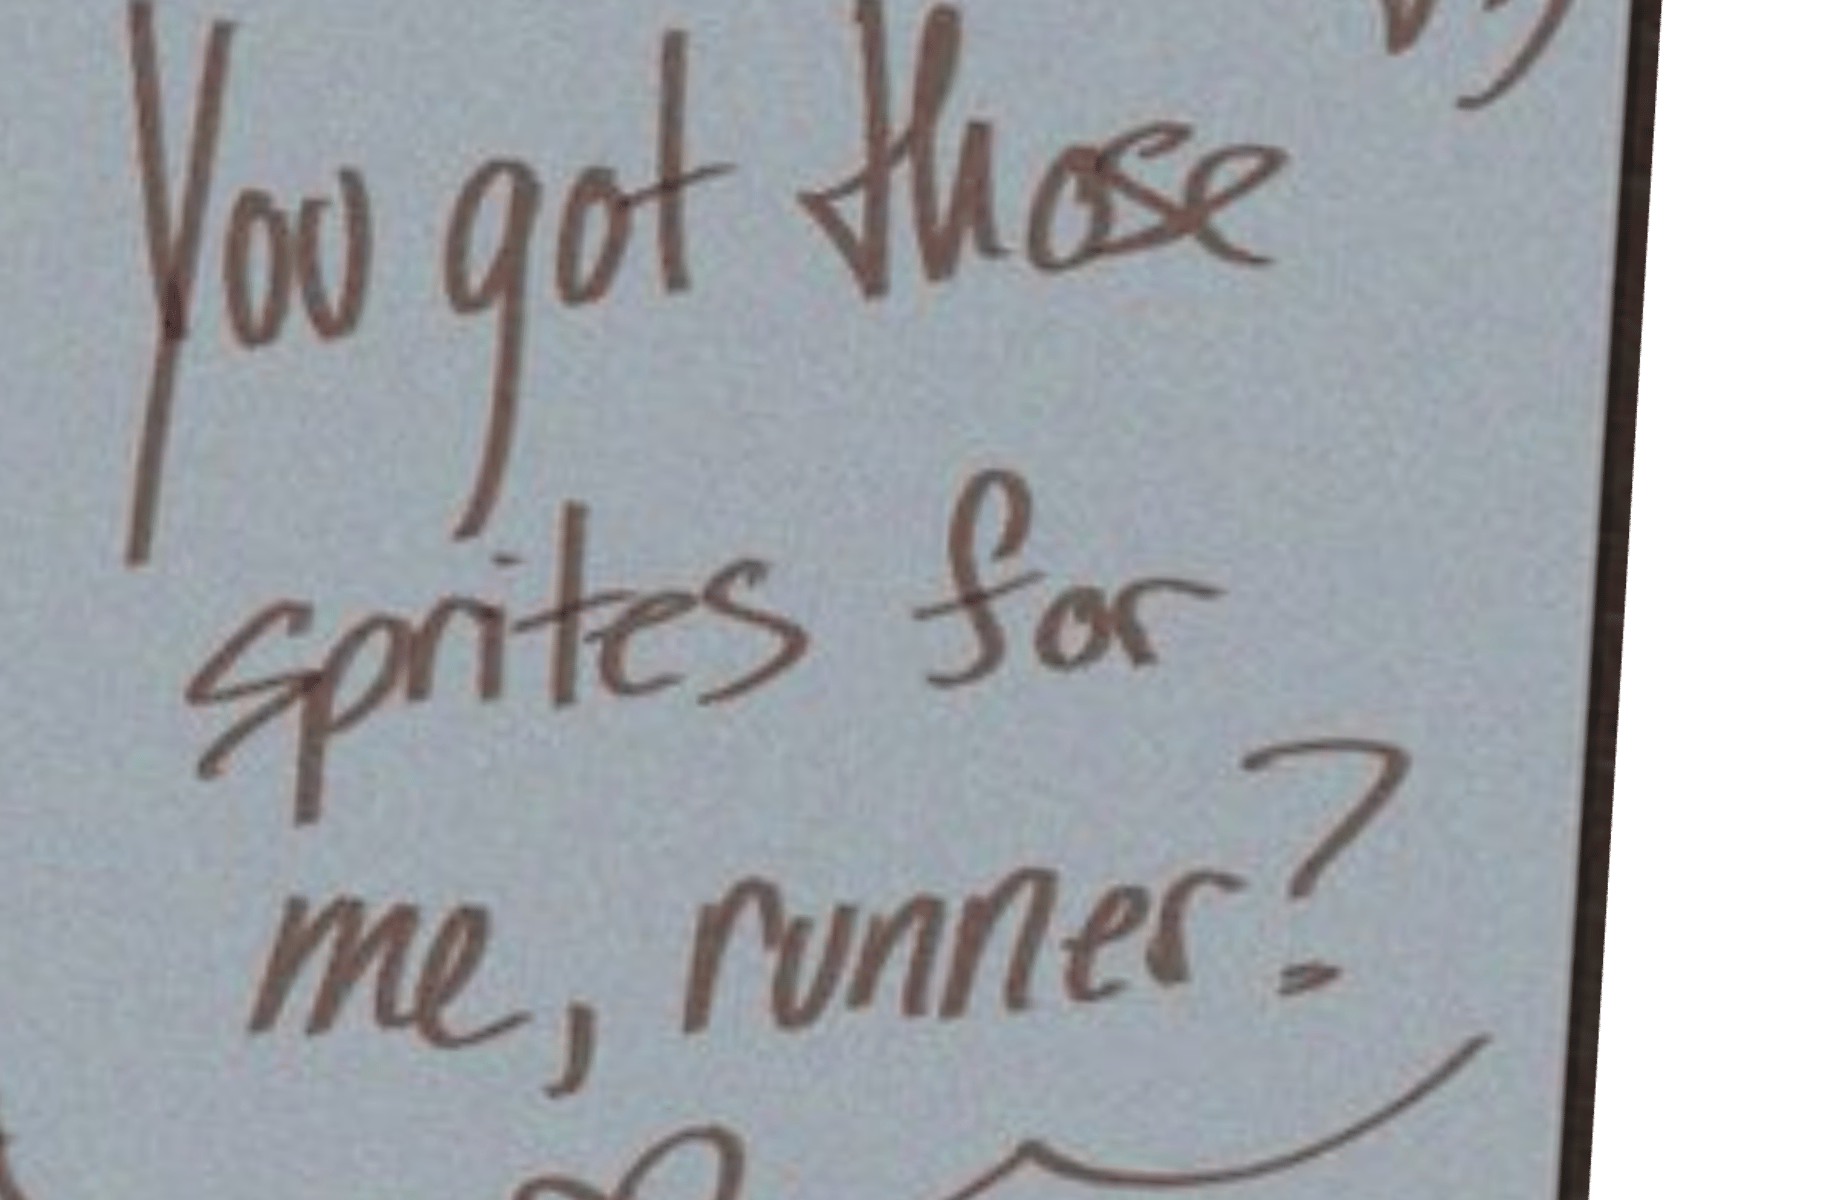 You got those
sprites for
me, runner?